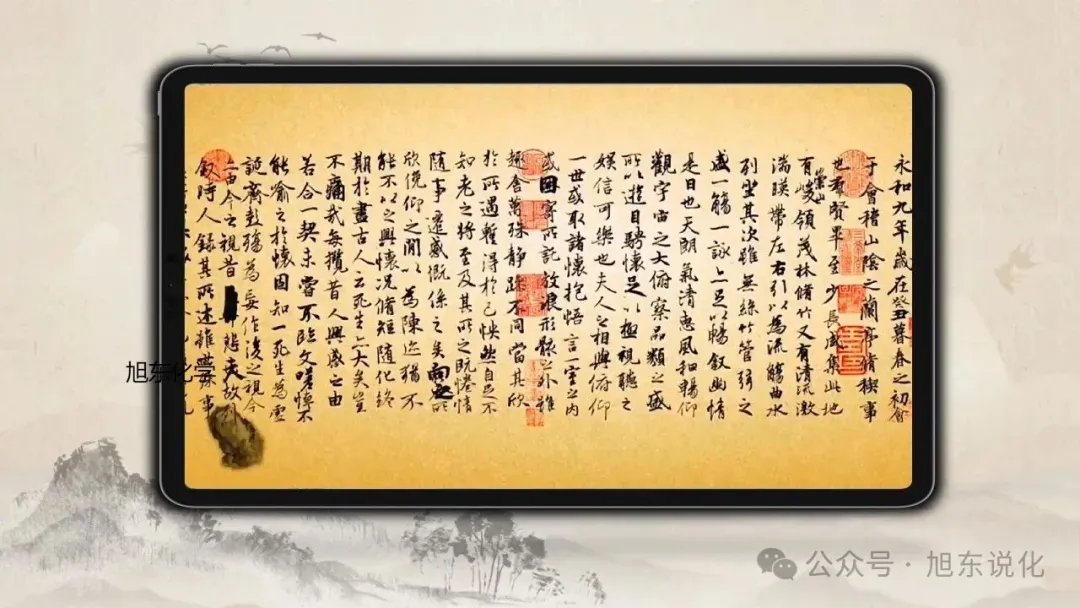 永和九年歲在癸丑暮春之初會
于會稽山陰之蘭亭脩稧事
也羣賢畢至少長咸集此地
有崇山峻領茂林脩竹又有清流激
湍暎帶左右引以為流觴曲水
列坐其次雖無絲竹管弦之
盛一觴一詠亦足以暢敘幽情
是日也天朗氣清惠風和暢仰
觀宇宙之大俯察品類之盛
所以遊目騁懷足以極視聽之
娛信可樂也夫人之相與俯仰
一世或取諸懷抱悟言一室之內
或因寄所託放浪形骸之外雖
趣舍萬殊靜躁不同當其欣
於所遇暫得於己怏然自足不
知老之將至及其所之既惓情
隨事遷感慨係之矣向之所
欣俛仰之閒以為陳迹猶不
能不以之興懷況脩短隨化終
期於盡古人云死生亦大矣豈
不痛哉每攬昔人興感之由
若合一契未嘗不臨文嗟悼不
能喻之於懷固知一死生為虛
誕齊彭殤為妄作後之視今
亦由今之視昔悲夫故列
敘時人錄其所述雖世殊事
旭东化学
公众号·旭东说化